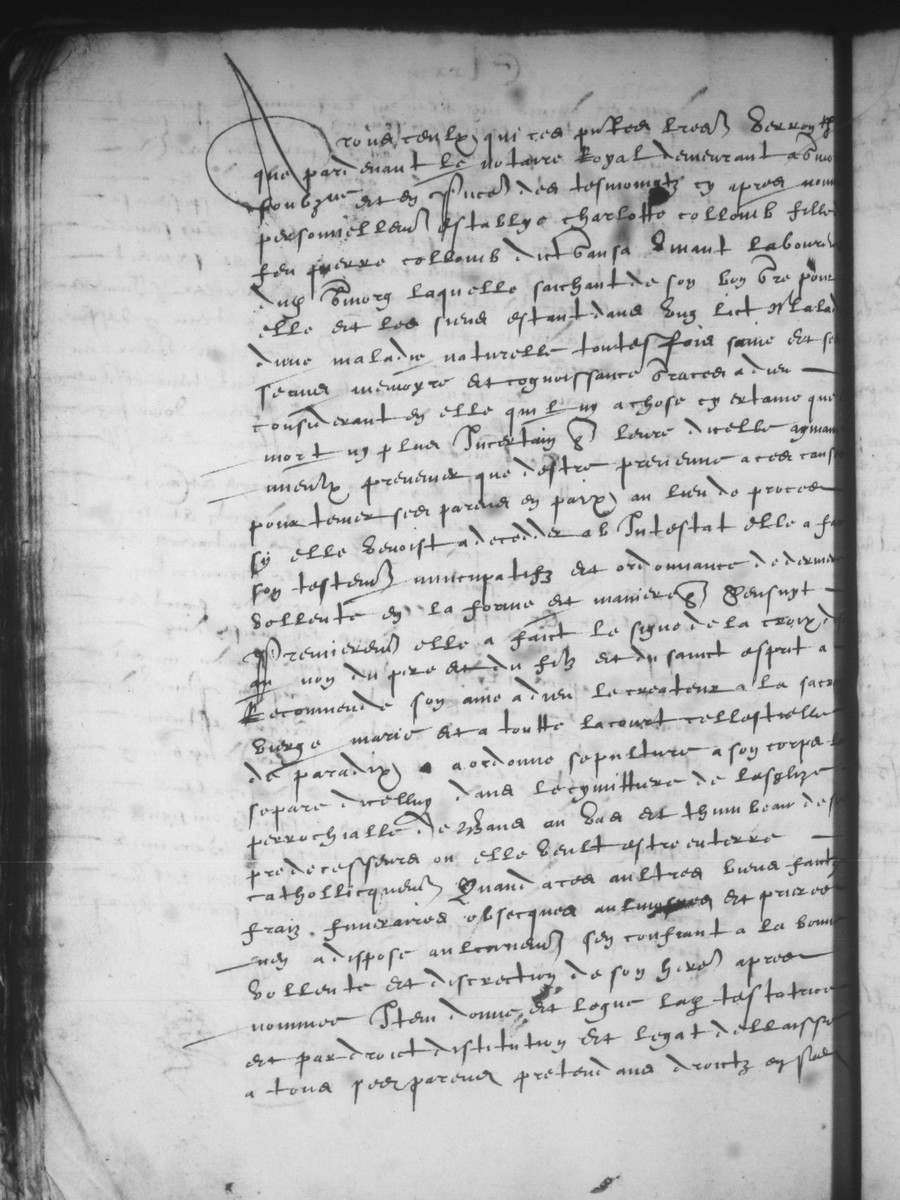 A tous ceulx qui ces pntes lres verront
que pardevant le notaire Royal demeurant a
soubzne et en pnce des tesmoingtz cy apres nom
personnellemt establye charlotte collomb fille
feu pierre collomb dict vivant laboureur
laquelle saichant de son bon gre pour
elle et les siens estant dans ung lict malade
dune maladie naturelle toutesfois saine et ses
sens memoyre et cognoissance graces a dieu
considerant en elle quil ny a chose cy certaine que
mort ny plus Incertain q leure dicelle aymant
mieulx prevenir que destre prevenue a ces causes
pour tenir ses parens en paix au lieu de proces
sy elle venoist a decedder ab Intestat elle a fai
son testemt nuncupatifz et ordonnance de dernie
vollente en la forme et maniere q sensuyt
Premieremt elle a faict le signe de la croix
au nom du pere et du filz et du sainct esprit a
Recommende son ame a dieu le createur a la sacre
vierge marie et a toutte la court cellestielle
de paradix a ordonne sepulture a son corps
separe dicelluy dans le cymittiere de lesglize
perrochialle de au vas et thumbeau de ses
predecesseurs ou elle veult estre enterre
catholicquemt Quand a ces aultres biens faictz
fraiz funeraires obsecques aulmosnes et prieres
nen a dispose aultrement sen confiant a la bonne
vollente et discrection de son here apres
nommee Item donne et legue lad testatrice
et par droict distitution et legat dellaisse
a tous ses parens pretendans droictz en ses